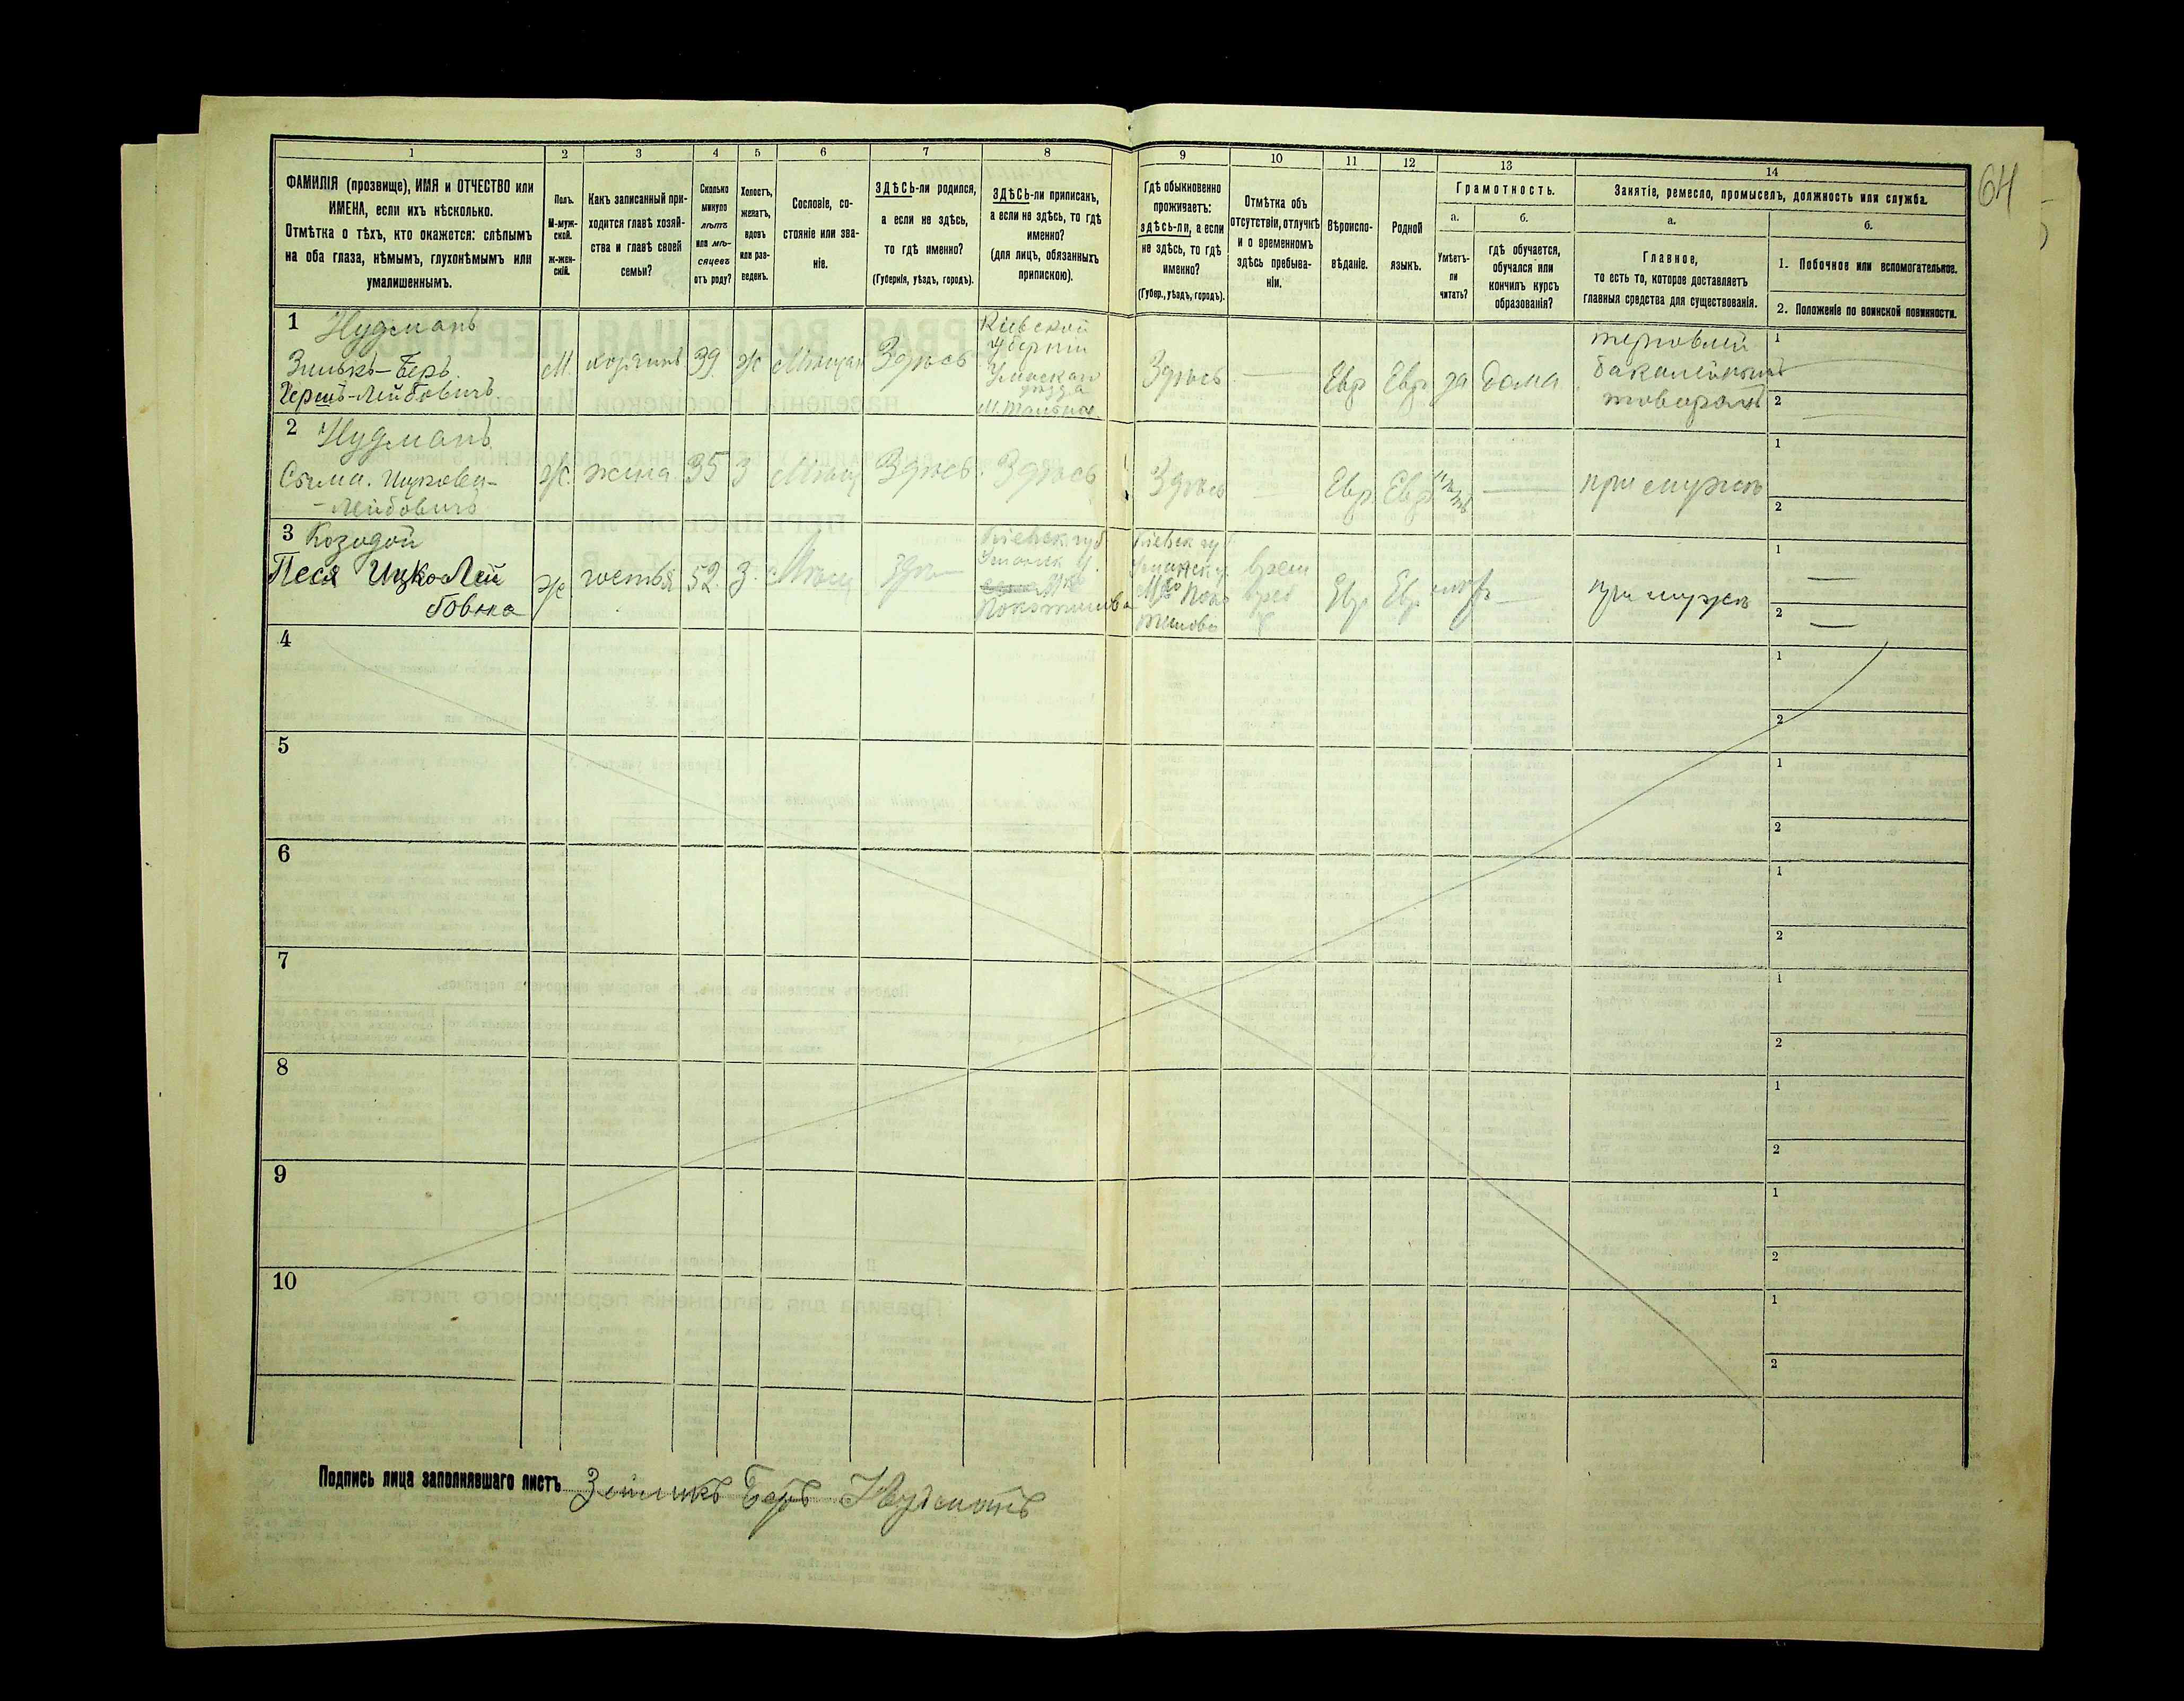 64
1
2
3
4
5
6
7
8
9
10
11
12
13
14
ФАМИЛІЯ (прозвище), ИМЯ и ОТЧЕСТВО или
ИМЕНА, если ихъ нѣсколько.
Отмѣтка о тѣхъ, кто окажется: слѣпымъ
на оба глаза, нѣмымъ, глухонѣмымъ или
умалишеннымъ.
Полъ.
М-муж-
ской.
ж-жен-
скій.
Какъ записанный при-
ходится главѣ хозяй-
ства и главѣ своей
семьи?
Сколько
минуло
лѣтъ
или мѣ-
сяцевъ
отъ роду?
Холостъ,
женатъ,
вдовъ
или раз-
веденъ.
Сословіе, со-
стояніе или зва-
ніе.
ЗДѢСЬ-ли родился,
а если не здѣсь,
то гдѣ именно?
(Губернія, уѣздъ, городъ).
ЗДѢСЬ-ли приписанъ,
а если не здѣсь, то гдѣ
именно?
(для лицъ, обязанныхъ
припискою).
Гдѣ обыкновенно
проживаетъ:
здѣсь-ли, а если
не здѣсь, то гдѣ
именно?
(Губер., уѣздъ, городъ).
Отмѣтка объ
отсутствіи, отлучкѣ
и о временномъ
здѣсь пребыва-
ніи.
Вѣроиспо-
вѣданіе.
Родной
языкъ.
Грамотность.
а.
Умѣетъ-
ли
читать?
б.
гдѣ обучается,
обучался или
кончилъ курсъ
образованія?
Занятіе, ремесло, промыселъ, должность или служба.
а.
Главное,
то есть то, которое доставляетъ
главныя средства для существованія.
б.
1. Побочное или вспомогательное.
2. Положеніе по воинской повинности.
1 Нудманъ
Зилькъ-Беръ
Гершъ-Лейбовичъ
М.
хозяинъ
39
ж
Мѣщан
Здѣсь
Кіевской
Губерніи
Уманскаго
уѣзда
Здѣсь
—
Евр
Евр
да
Дома
торговлей
бакалейнымъ
товаромъ
1
2
2 Нудманъ
Сима. Ицкова-
-Лейбовичъ
Ж.
жена
35
З
Мѣщ
Здѣсь
Здѣсь
Здѣсь
—
Евр
Евр
нѣтъ
—
при мужѣ
1
2
3 Козодой
Песя ИцкоЛей
бовна
ж
гостья
52.
З.
Мѣщ
Кіевск губ
Уманск у.
Покотилова
Кіевск гу
Уманск у.
Поко
тилово
врем
преб
Евр
Евр
—
при мужѣ
1
2
4
1
2
5
1
2
6
1
2
7
1
2
8
1
2
9
1
2
10
1
2
Подпись лица заполнявшаго листъ Зейликъ Беръ Нудманъ